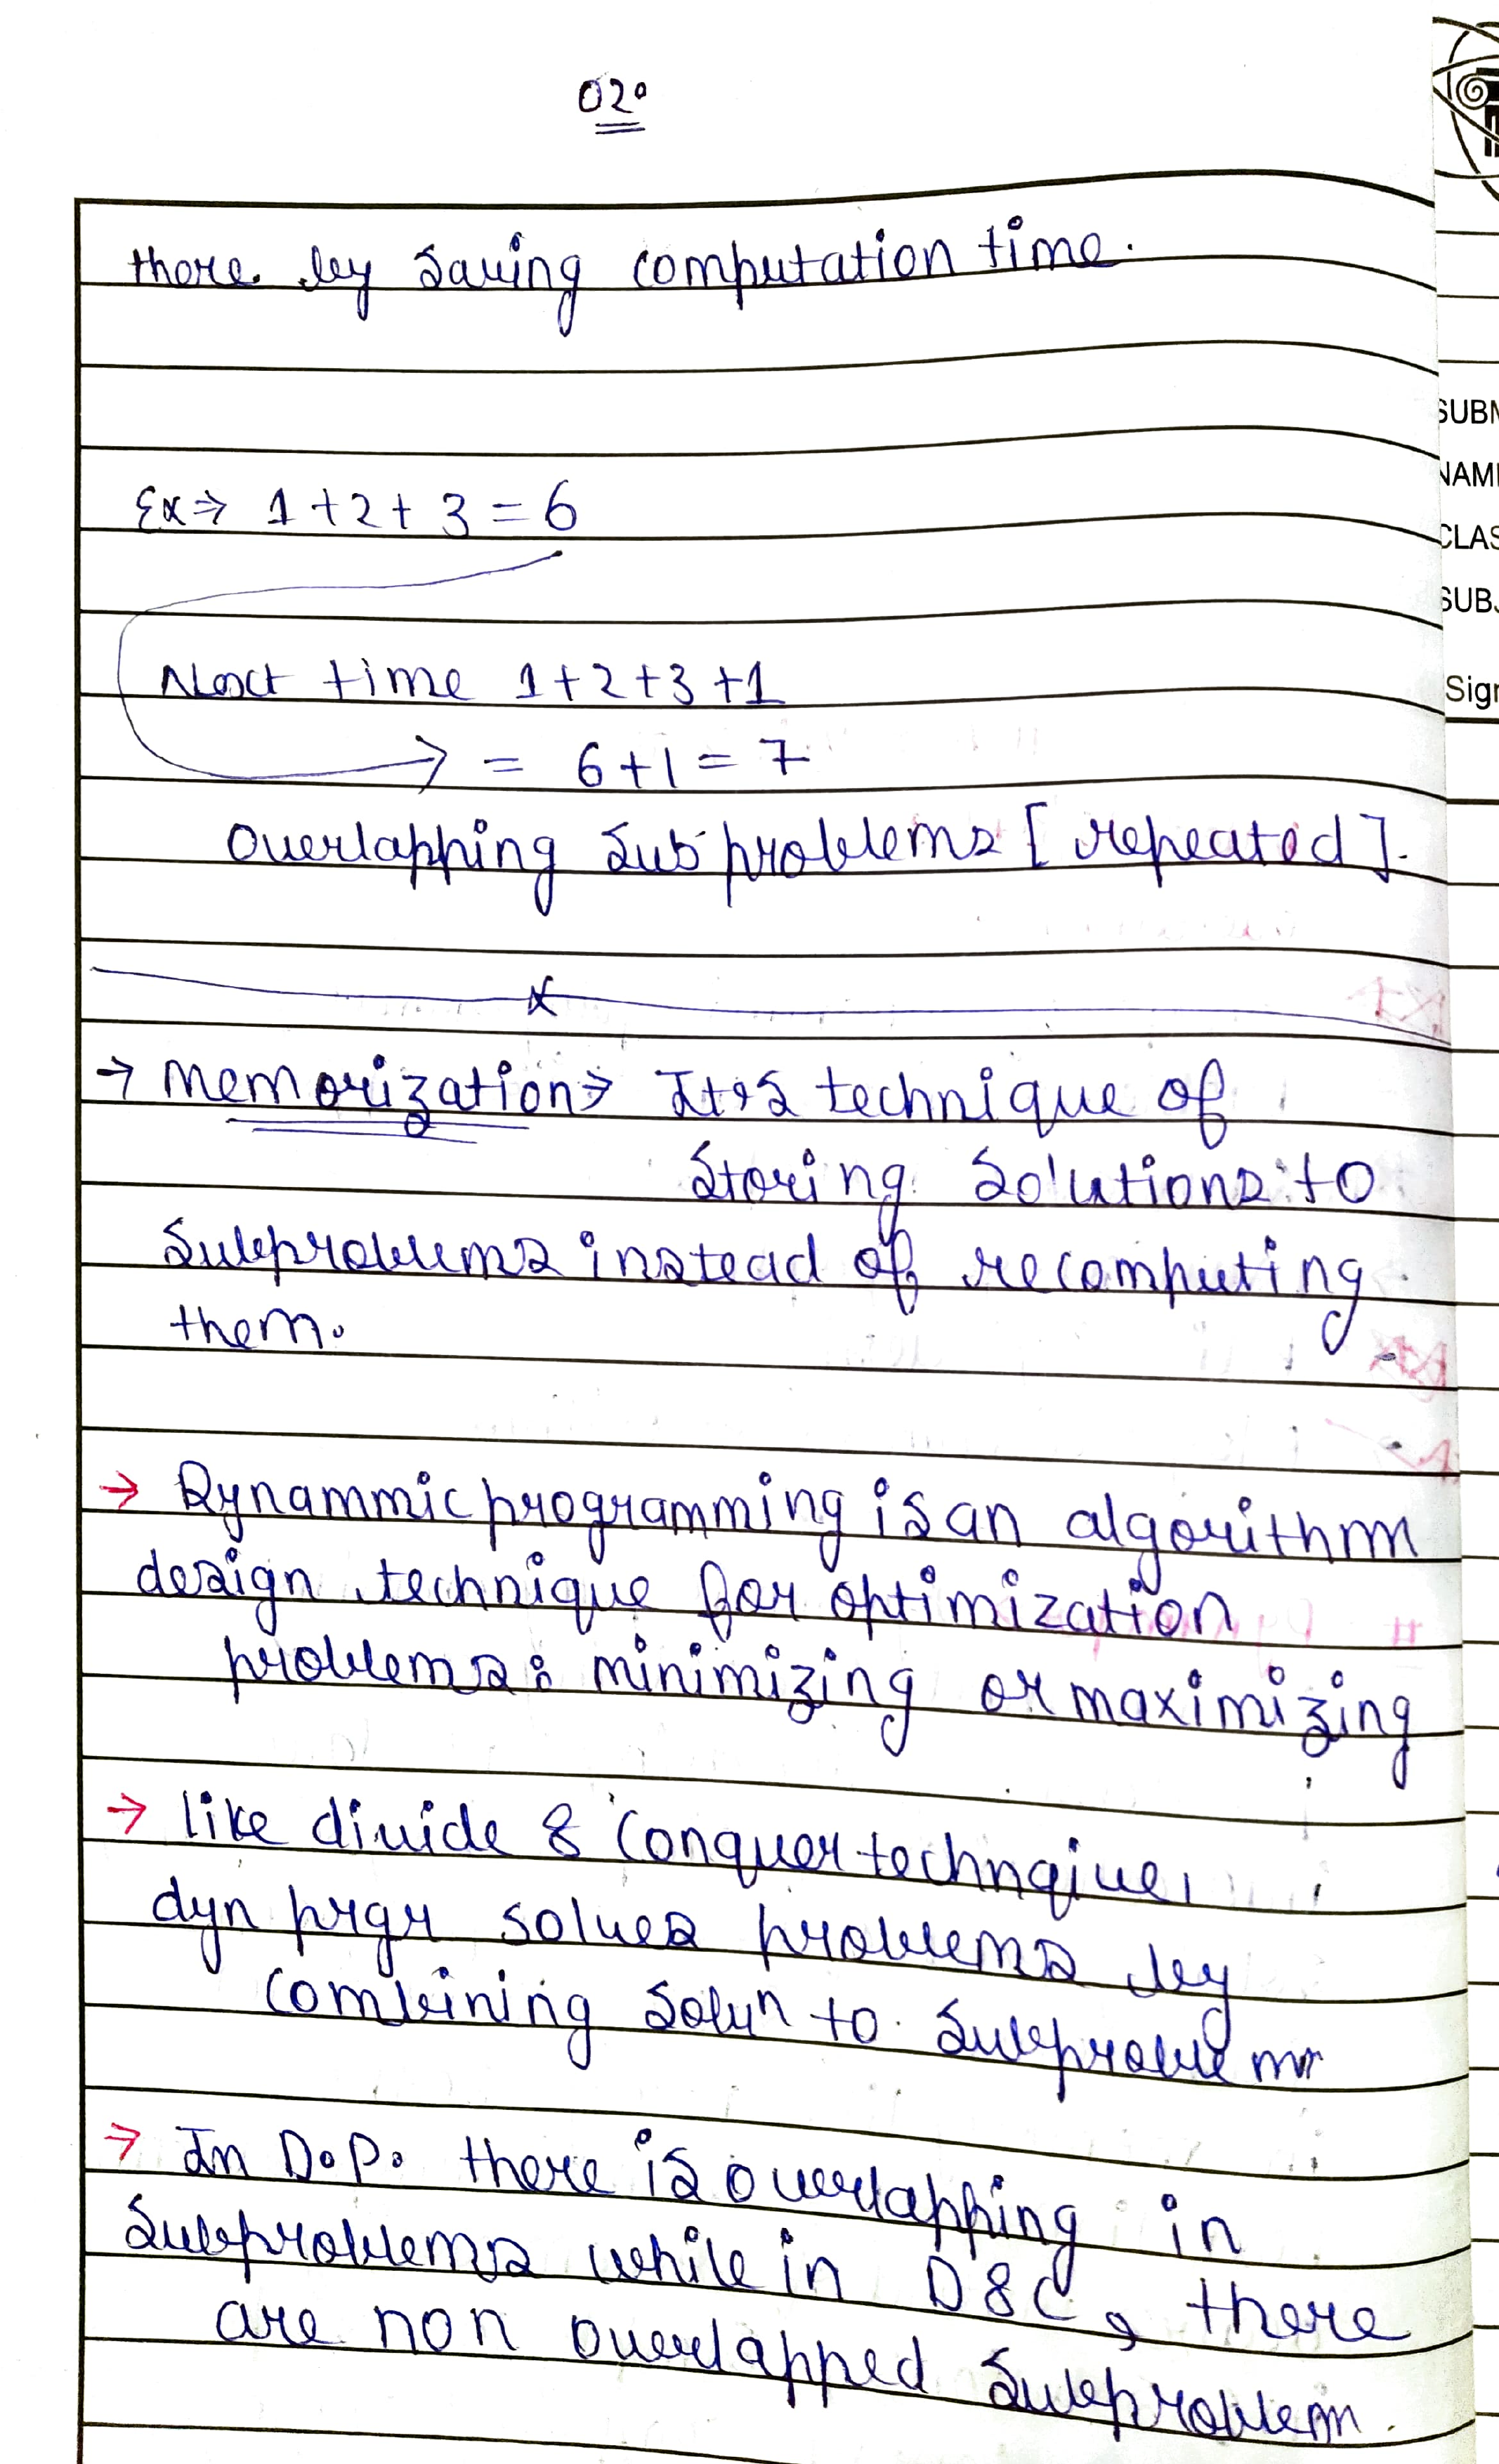 02.
there by saving computation time.
Ex⇒ 1+2+3=6
Next time 1+2+3+1
→ = 6+1=7
overlapping sub problems [repeated].
x
→ memorization⇒ It's technique of
storing solutions to
subproblems instead of recomputing
them.
→ Dynammic programming is an algorithm
design technique for optimization
problems: minimizing or maximizing
→ like divide & conquer technqiue,
dyn prgr solves problems by
combining soluⁿ to subproblem
→ In D.P. there is overlapping in
subproblems while in D&C, there
are non overlapped subproblem.
SUBM
NAM
CLAS
SUBJ
Sign